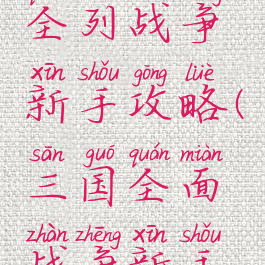 全列战争
xīn shǒu gōng lüè
新手攻略(
sān guó quán miàn
三国全面
zhàn zhēng xīn shǒu
战争新手